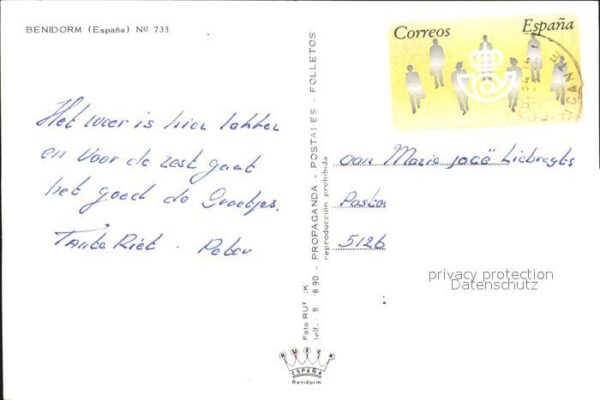 BENIDORM (España) Nº 733
Correos España
Het weer is hier lekker
en voor de rest gaat
het goed de Groetjes.
Tante Riet. Peter
aan Maria José Liebregts
Pastor
5126
privacy protection
Datenschutz
PROPAGANDA - POSTALES - FOLLETOS
reproducción prohibida
Foto RU
telf. 8 890
RUECK
ESPAÑA
Benidorm